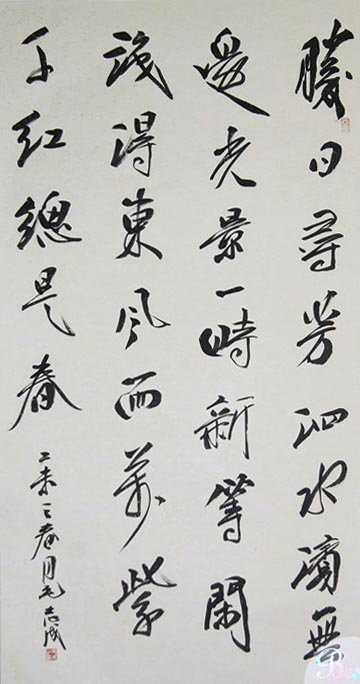 勝日尋芳泗水濱無
邊光景一時新等閑
識得東風面萬紫
千紅總是春
乙未春月毛志成
Be